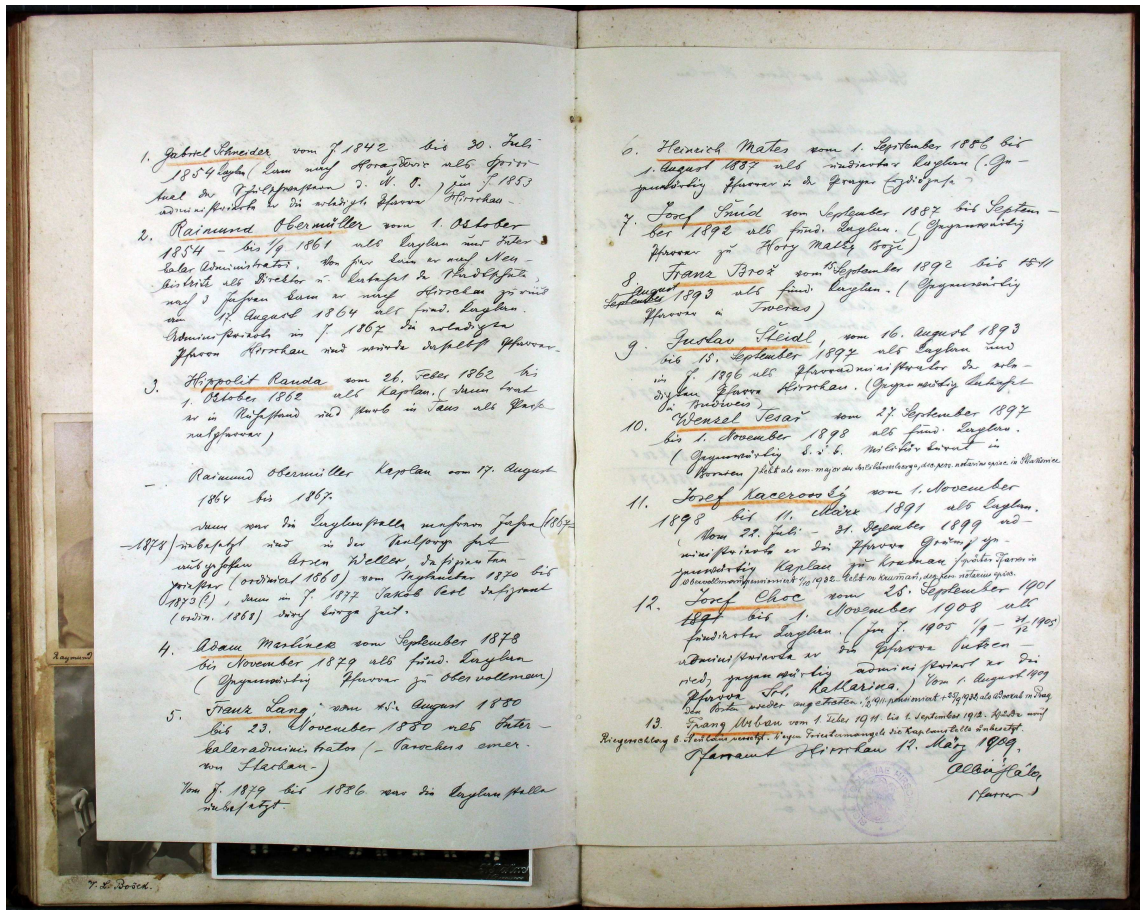 1. Gabriel Schneider vom J 1842 bis 30. Juli
1854 Kaplan (kam nach Horažďovic als Spiri-
tual der Schulschwestern d. N. D.) im J. 1853
administrierte er die erledigte Pfarre Hirschau.
2. Raimund Obermüller vom 1. Oktober
1854 – bis 1/9 1861 als Kaplan und Inter-
kalar Administrator. Von hier kam er nach Neu-
bistritz als Direktor u. Katechet der Stadtschule,
nach 3 Jahren kam er nach Hirschau zurück
am 17. August 1864 als fund. Kaplan.
Administrierte im J. 1867 die erledigte
Pfarre Hirschau und wurde daselbst Pfarrer.
3. Hippolit Randa vom 26. Feber 1862 bis
1. Oktober 1862 als Kaplan, (dann trat
er in Ruhestand und starb in Taus als
)
– Raimund Obermüller Kaplan vom 17. August
1864 bis 1867.
dann war die Kaplanstelle mehrere Jahre (1867–
–1878) unbesetzt und in der Seelsorge hat
ausgeholfen Arsen Weller, defizienten-
priester (ordinirt 1860) vom September 1870 bis
1873(?), dann im J. 1877 Jakob defizient
(ordin. 1868) durch kurze Zeit.
4. Adam Martinek vom September 1878
bis November 1879 als fund. Kaplan
(Gegenwärtig Pfarrer zu Obervollmau)
5. Franz Lang vom 15. August 1880
bis 23. November 1880 als Inter-
kaleradministrator (– Parochus emer.
von Stachau.)
Vom J. 1879 bis 1886 war die Kaplanstelle
unbesetzt.
6. Heinrich Mates vom 1. September 1886 bis
1. August 1887 als fundierter Kaplan (. Ge-
genwärtig Pfarrer in der Prager Erzdiözese
7. Josef Šmíd vom September 1887 bis Septem-
ber 1892 als fund. Kaplan. (Gegenwärtig
Pfarrer zu Hory Matky Boží)
8 Franz Brož vom 15 September 1892 bis
August
September 1893 als fund. Kaplan. (Gegenwärtig
Pfarrer in Tweras)
9. Gustav Šteidl, vom 16. August 1893
bis 15. September 1897 als Kaplan und
im J. 1896 als Pfarradministrator der erle-
digten Pfarre Hirschau. (Gegenwärtig Katechet
in Budweis)
10. Wenzel Tesař vom 27. September 1897
bis 1. November 1898 als fund. Kaplan.
(Gegenwärtig k. u. k. Militärkurat in
Bosnien) lebt als em. major des , des. pers. notarius episc. in Strakonice
11. Josef Kacerovský vom 1. November
1898 bis 11. März 1891 als Kaplan.
(Vom 22. Juli – 31. Dezember 1899 ad-
ministrierte er die Pfarre Grump ge-
genwärtig Kaplan zu Krumau) später Pfarrer in
Obervollmau pensioniert 1932 – lebt in Krumau, des. pers. notarius episc.
12. Josef Choc vom 25. September 1901
1891 bis 1. November 1908 als
fundierter Kaplan. (Im J. 1905 1/9 – 31/12 1905
administrierte er die Pfarre Putzen-
ried, gegenwärtig administriert er die
Pfarre Skt. Katharina.) Vom 1. August 1909
den Posten wieder angetreten, 1911 pensioniert + 1932 als in Prag
13. Franz Urban vom 1. Feber 1911. bis 1. September 1912. Wurde nach
Riegerschlag b. Neuhaus versetzt. Wegen Priestermangels die Kaplanstelle unbesetzt.
Pfarramt Hirschau 12. März 1909.
Pfarrer
Raymund
V. L. Bošek.